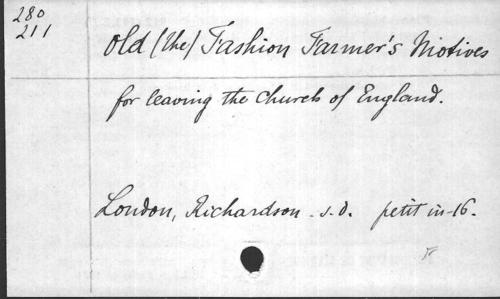 280
211
Old (the) Fashion Farmer's Motives
for leaving the Church of England.
London, Richardson. s. d. petit in-16.